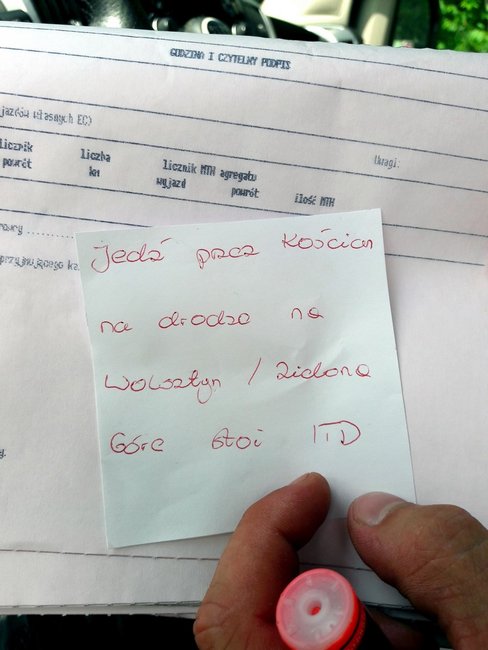 GODZINA I CZYTELNY PODPIS
jazdów własnych EC)
licznik
powrót
liczba
km
licznik MTH agregatu
wyjazd powrót
ilość MTH
Uwagi:
jedź przez Kościan
na drodze na
Wolsztyn / Zielona
Górę stoi ITD